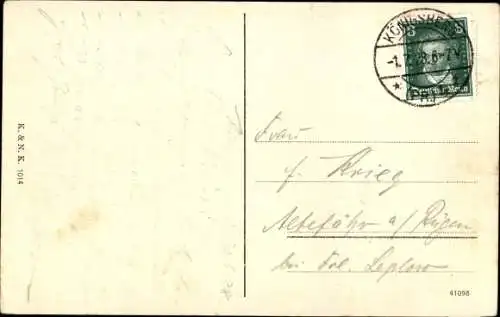 KÖNIGSBERG
-1. 7. 28. 6-7 V.
* (PR.)
Deutsches Reich
K. & N. K. 1014
Frau
f. Krieg
Altefähr a/ Rügen
bei Frl. Leplow
41098